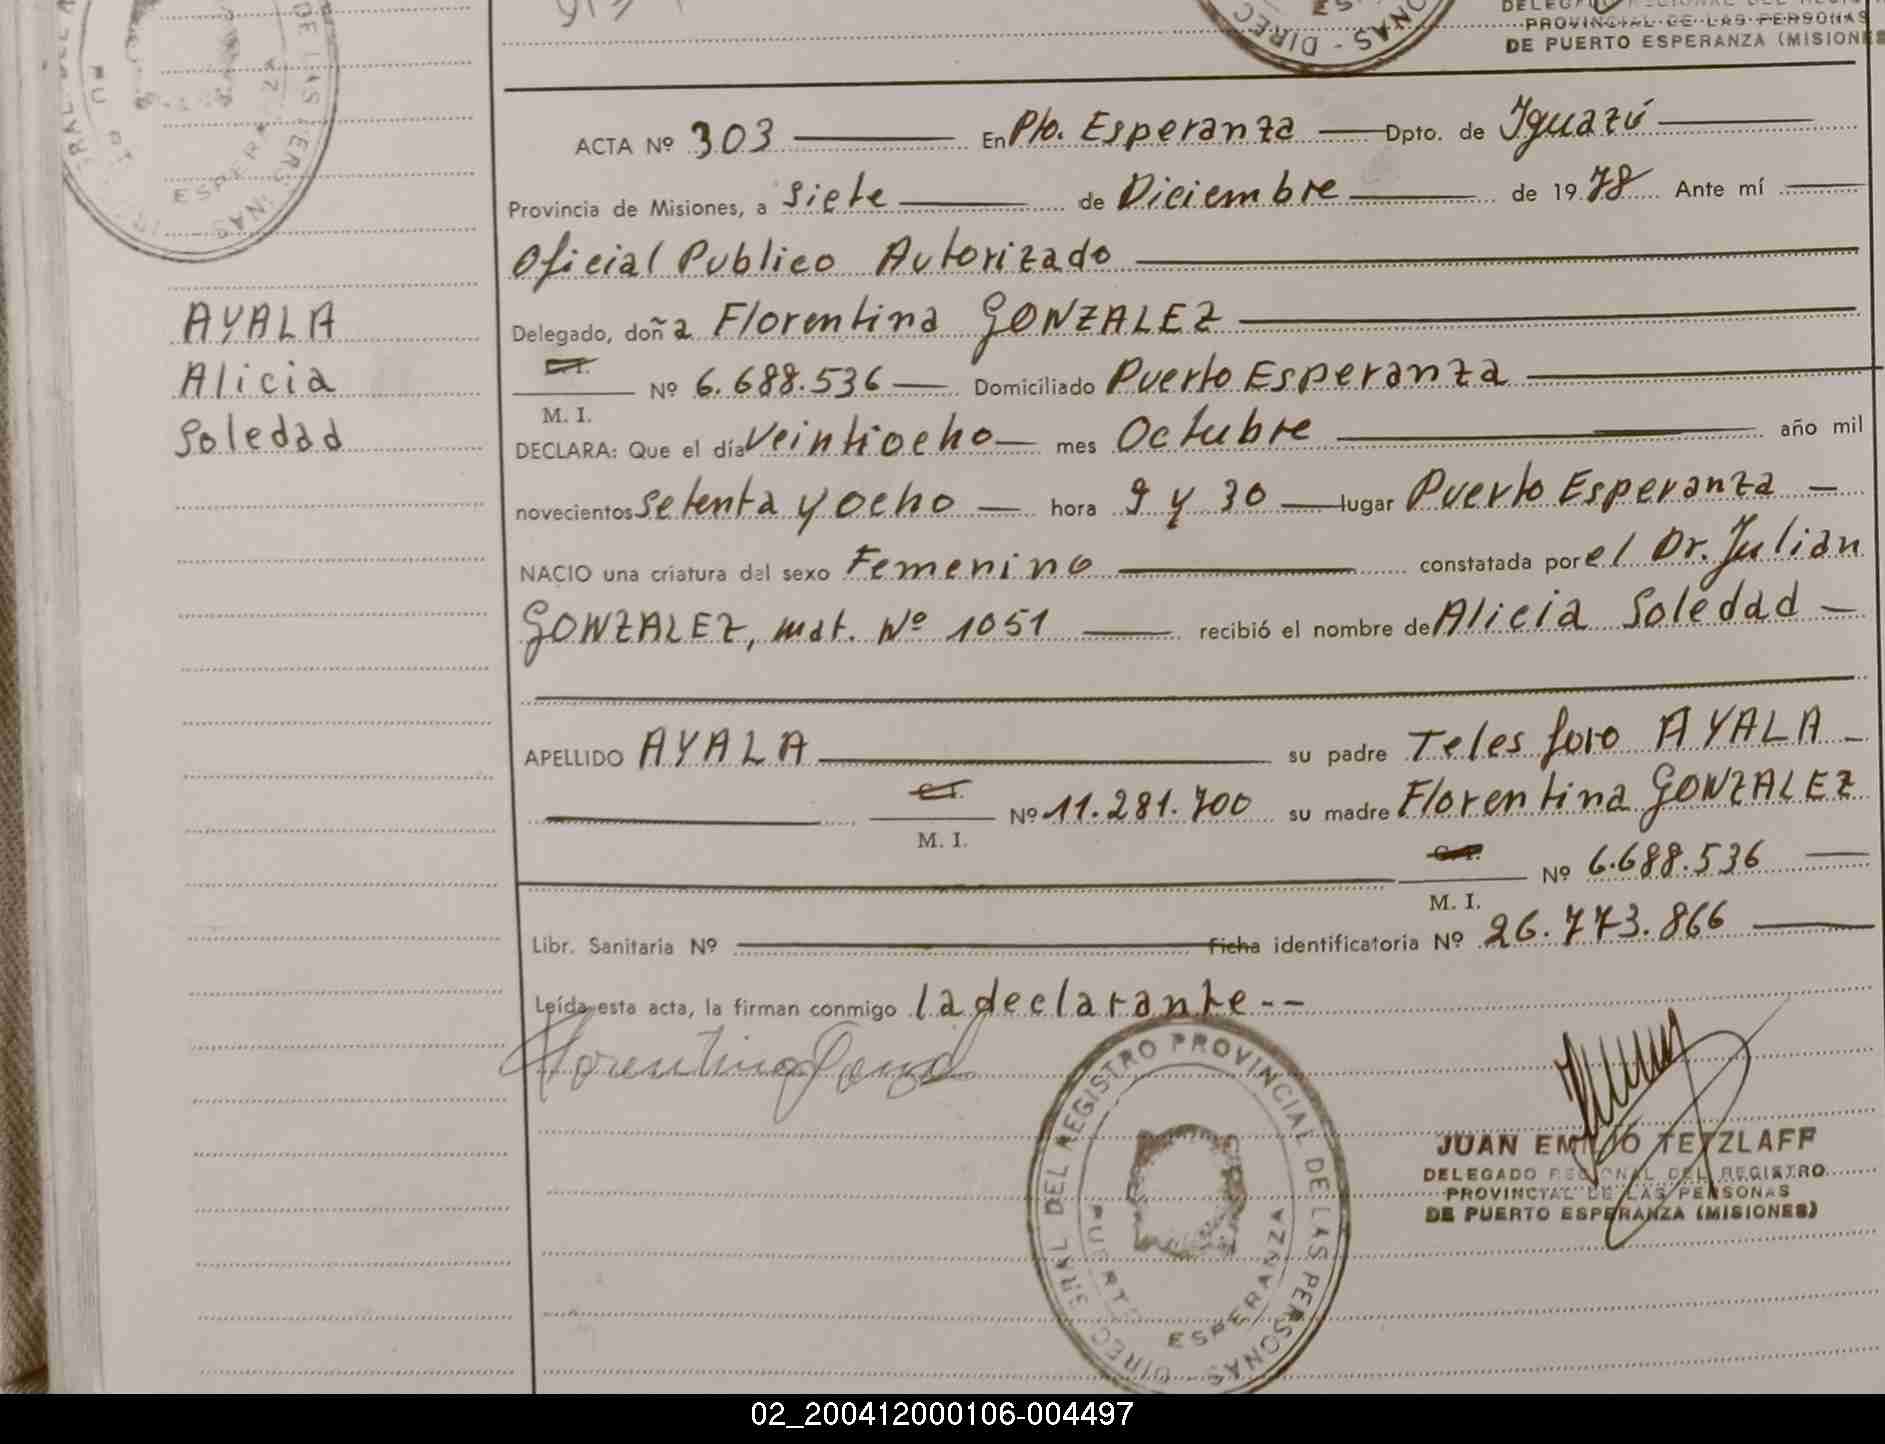 DE PUERTO ESPERANZA (MISIONES
PROVINCIAL DE LAS PERSONAS
AYALA
Alicia
Soledad
ACTA Nº 303 En Pto. Esperanza Dpto. de Iguazú
Provincia de Misiones, a siete de Diciembre de 1978 Ante mí
Oficial Publico Autorizado
Delegado, doña Florentina GONZALEZ
C.I.
M. I. Nº 6.688.536 Domiciliado Puerto Esperanza
DECLARA: Que el día veintiocho mes Octubre año mil
novecientos setenta y ocho hora 9 y 30 lugar Puerto Esperanza
NACIO una criatura del sexo Femenino constatada por el Dr. Julian
GONZALEZ, mat. Nº 1051 recibió el nombre de Alicia Soledad
APELLIDO AYALA su padre Telesforo AYALA
C.I.
M. I. Nº 11.281.700 su madre Florentina GONZALEZ
C.I.
M. I. Nº 6.688.536
Libr. Sanitaria Nº ficha identificatoria Nº 26.773.866
Leída esta acta, la firman conmigo la declarante--
DIREC RAL DEL REGISTRO PROVINCIAL DE LAS PERSONAS
PUERTO ESPERANZA
JUAN EMILIO TETZLAFF
DELEGADO REGIONAL DEL REGISTRO
PROVINCIAL DE LAS PERSONAS
DE PUERTO ESPERANZA (MISIONES)
02_200412000106-004497